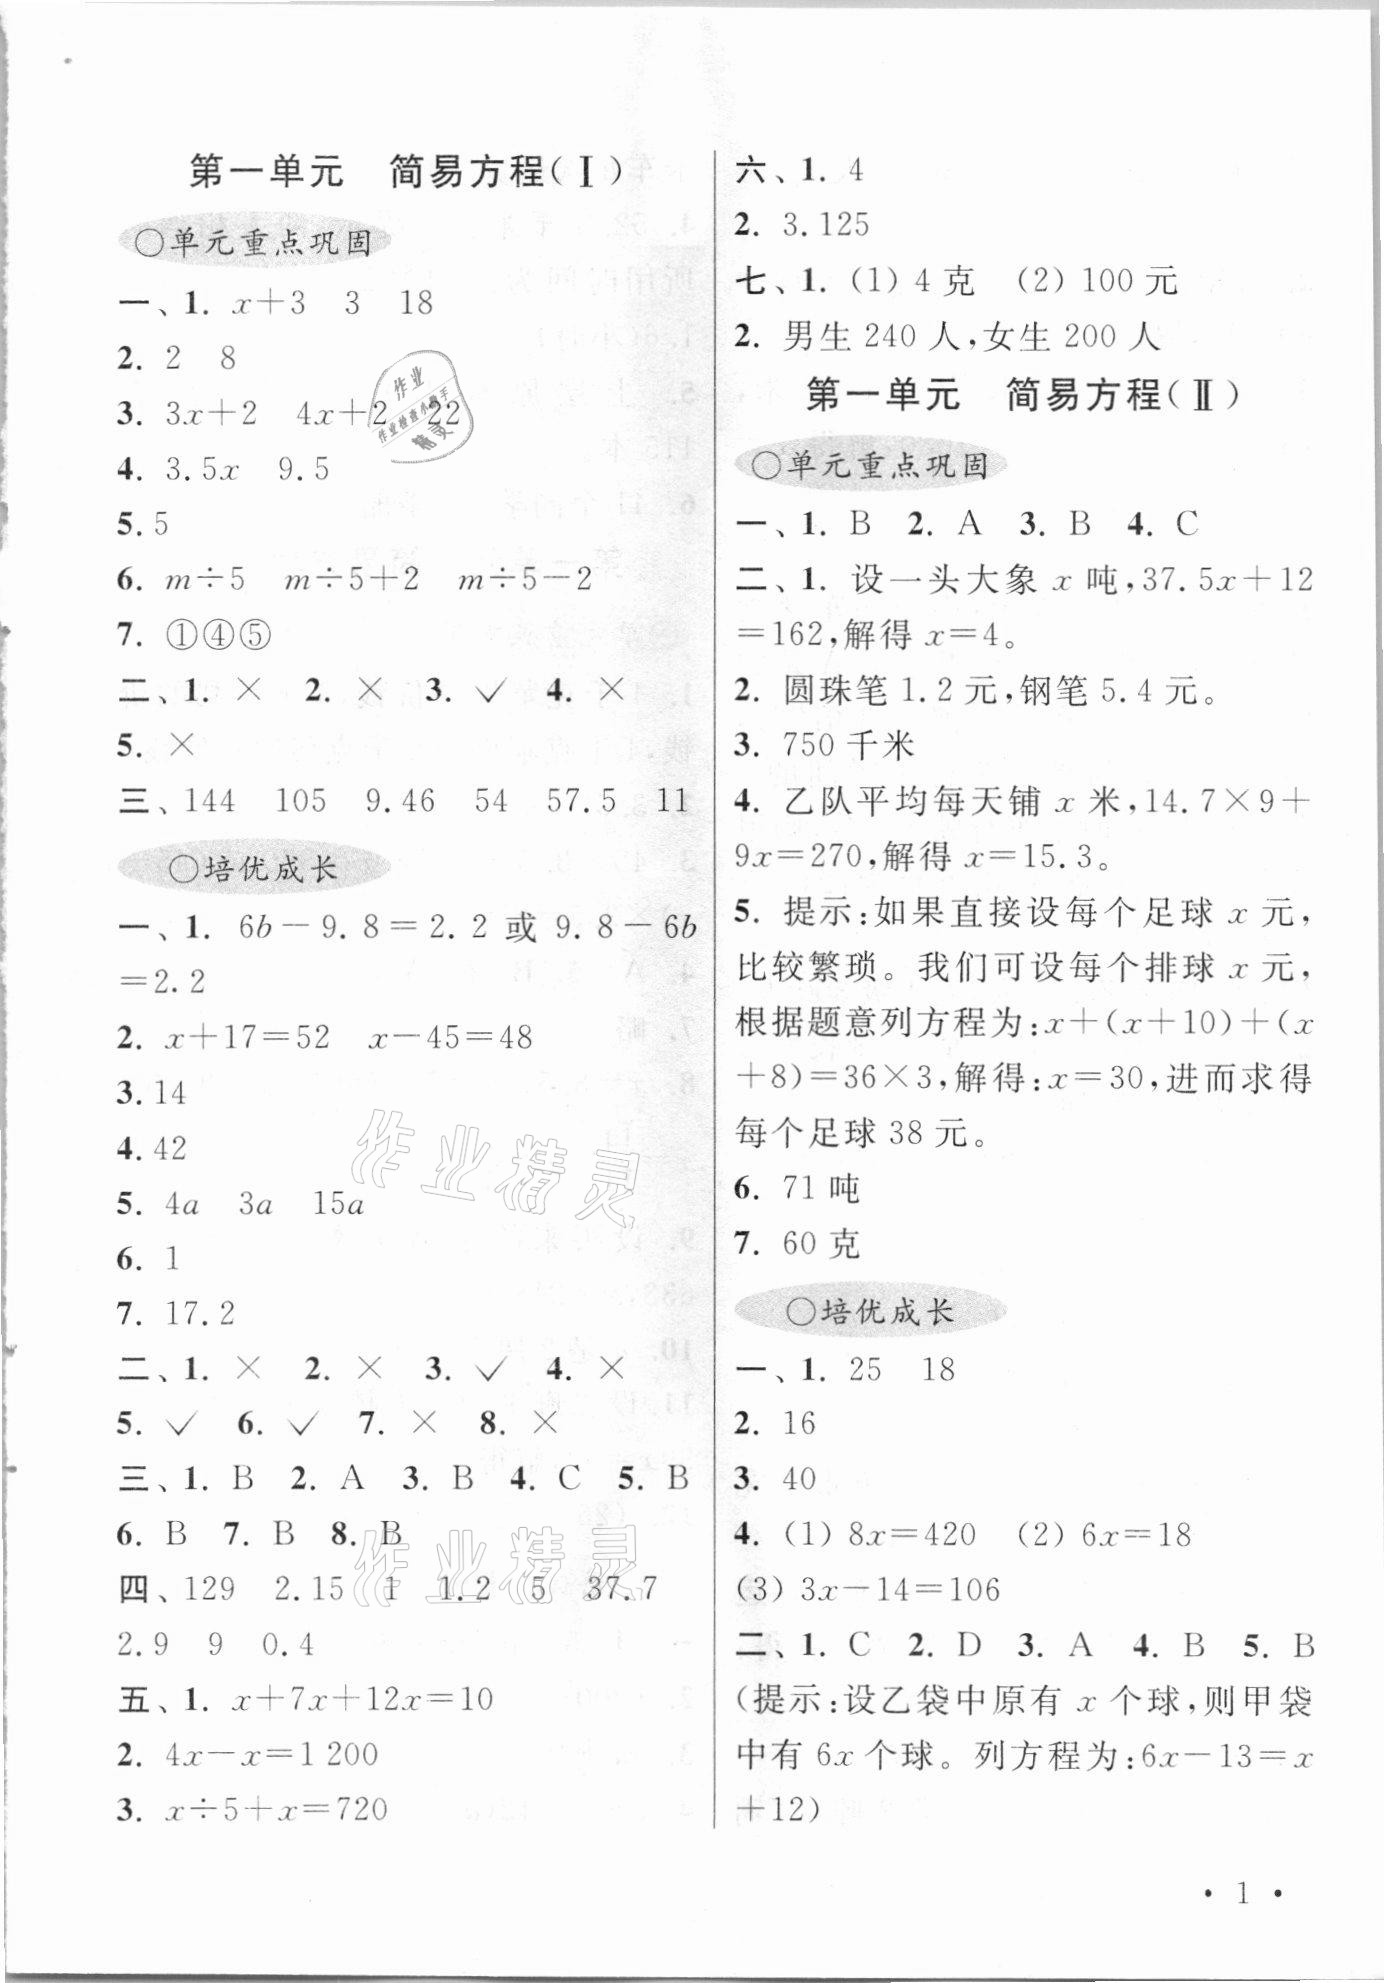 第一单元 简易方程(Ⅰ)
○单元重点巩固
一、1. x+3 3 18
2. 2 8
3. 3x+2 4x+2 22
4. 3.5x 9.5
5. 5
6. m÷5 m÷5+2 m÷5-2
7. ①④⑤
二、1. × 2. × 3. ✓ 4. ×
5. ×
三、144 105 9.46 54 57.5 11
○培优成长
一、1. 6b-9.8=2.2 或 9.8-6b
=2.2
2. x+17=52 x-45=48
3. 14
4. 42
5. 4a 3a 15a
6. 1
7. 17.2
二、1. × 2. × 3. ✓ 4. ×
5. ✓ 6. ✓ 7. × 8. ×
三、1. B 2. A 3. B 4. C 5. B
6. B 7. B 8. B
四、129 2.15 1 1.2 5 37.7
2.9 9 0.4
五、1. x+7x+12x=10
2. 4x-x=1 200
3. x÷5+x=720
六、1. 4
2. 3.125
七、1. (1) 4 克 (2) 100 元
2. 男生 240 人,女生 200 人
第一单元 简易方程(Ⅱ)
○单元重点巩固
一、1. B 2. A 3. B 4. C
二、1. 设一头大象 x 吨,37.5x+12
=162,解得 x=4。
2. 圆珠笔 1.2 元,钢笔 5.4 元。
3. 750 千米
4. 乙队平均每天铺 x 米,14.7×9+
9x=270,解得 x=15.3。
5. 提示:如果直接设每个足球 x 元,
比较繁琐。我们可设每个排球 x 元,
根据题意列方程为:x+(x+10)+(x
+8)=36×3,解得:x=30,进而求得
每个足球 38 元。
6. 71 吨
7. 60 克
○培优成长
一、1. 25 18
2. 16
3. 40
4. (1) 8x=420 (2) 6x=18
(3) 3x-14=106
二、1. C 2. D 3. A 4. B 5. B
(提示:设乙袋中原有 x 个球,则甲袋
中有 6x 个球。列方程为:6x-13=x
+12)
· 1 ·
作业
作业检查小助手
精灵
作业精灵
作业精灵